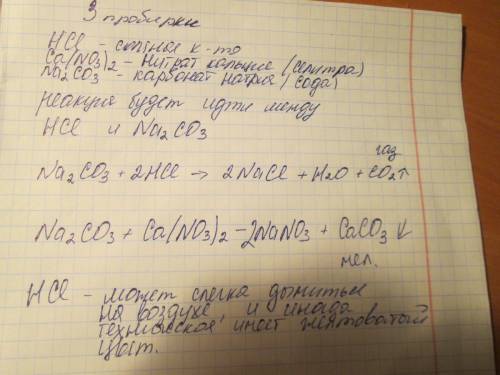 3 пробирки
HCl - соляная к-та
Ca(NO3)2 - нитрат кальция (селитра)
Na2CO3 - карбонат натрия (сода)
реакция будет идти между
HCl и Na2CO3
газ
Na2CO3 + 2HCl → 2NaCl + H2O + CO2↑
Na2CO3 + Ca(NO3)2 - 2NaNO3 + CaCO3 ↓
мел.
HCl - может слегка дымиться
на воздухе, и иногда
техническое, имеет желтоватый
цвет.